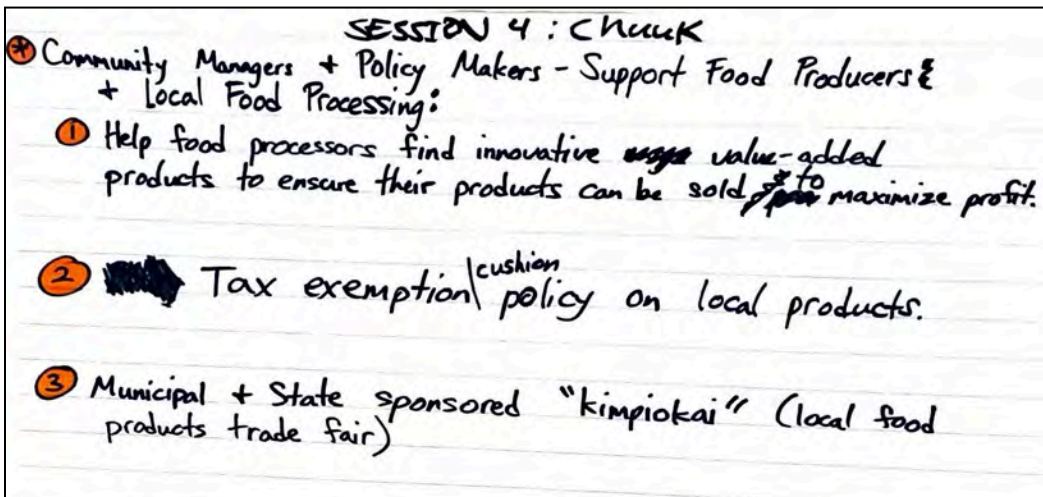 SESSION 4 : Chuuk
* Community Managers + Policy Makers - Support Food Producers &
+ Local Food Processing:
1 Help food processors find innovative value-added
products to ensure their products can be sold & to maximize profit.
2 Tax exemption\ cushion policy on local products.
3 Municipal + State sponsored "kimpiokai" (local food
products trade fair)